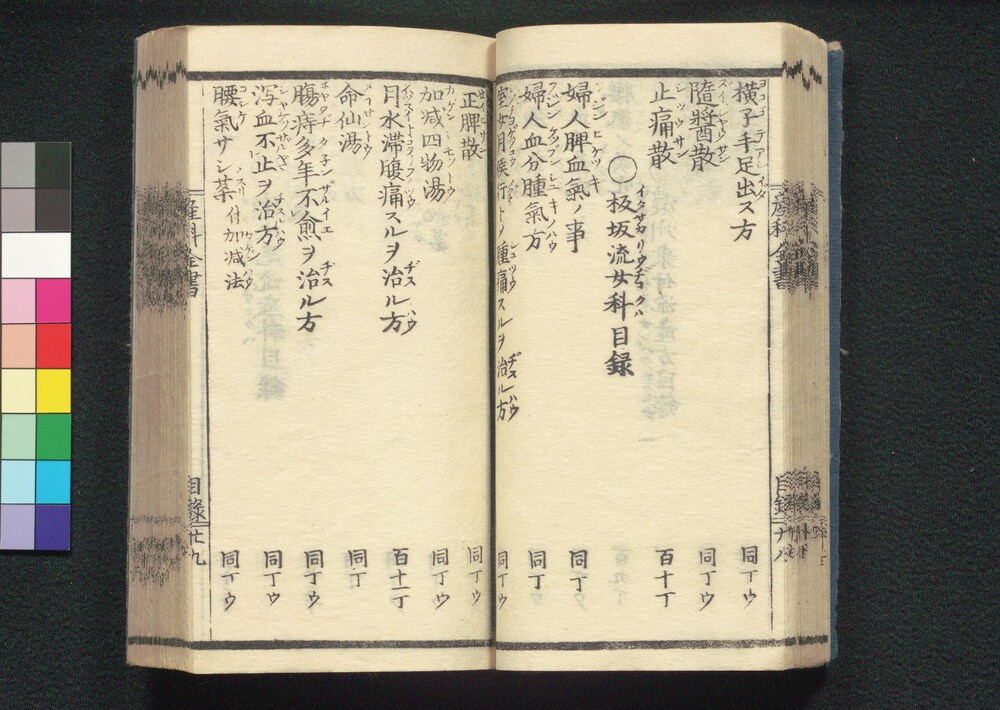 横子手足出ス方 同丁ウ
隨醬散 同丁ウ
止痛散 百十丁
○板坂流女科目録
婦人脾血氣ノ事 同丁ウ
婦人血分腫氣方 同丁
室女月候行トノ腫痛スルヲ治ル方 同丁ウ
正脾散 同丁ウ
加减四物湯 同丁ウ
月水滞腹痛スルヲ治ル方 百十一丁
命仙湯 同丁
腸痔多年不愈ヲ治ル方 同丁ウ
泻血不止ヲ治方 同丁ウ
腰氣サシ薬 付加减法 同丁ウ
産科全書
目錄
産科全書
目錄 廿九